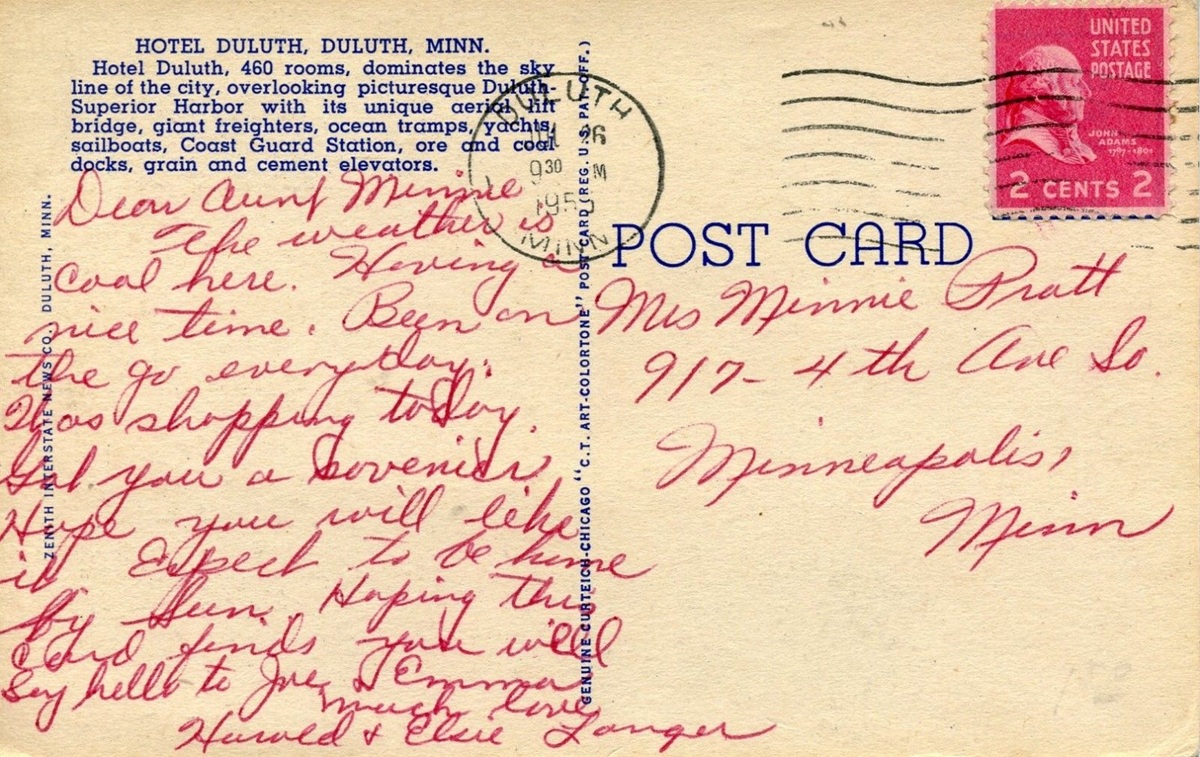 HOTEL DULUTH, DULUTH, MINN.
Hotel Duluth, 460 rooms, dominates the sky
line of the city, overlooking picturesque Duluth-
Superior Harbor with its unique aerial lift
bridge, giant freighters, ocean tramps, yachts,
sailboats, Coast Guard Station, ore and coal
docks, grain and cement elevators.
Dear Aunt Minnie
The weather is
cool here. Having a
nice time. Been on
the go everyday.
Was shopping today.
Got you a sovenier
Hope you will like
it Expect to be home
by Sun. Hoping this
card finds you well
Say hello to Joe & Emma
much love
Harold & Elsie Langer
ZENITH INTERSTATE NEWS CO., DULUTH, MINN.
GENUINE CURTEICH-CHICAGO "C.T. ART-COLORTONE" POST CARD (REG. U.S. PAT. OFF.)
DULUTH
26
9 30 M
MINN
UNITED
STATES
POSTAGE
JOHN
ADAMS
1797-1801
2 CENTS 2
POST CARD
Mrs Minnie Pratt
917- 4th Ave So.
Minneapolis,
Minn